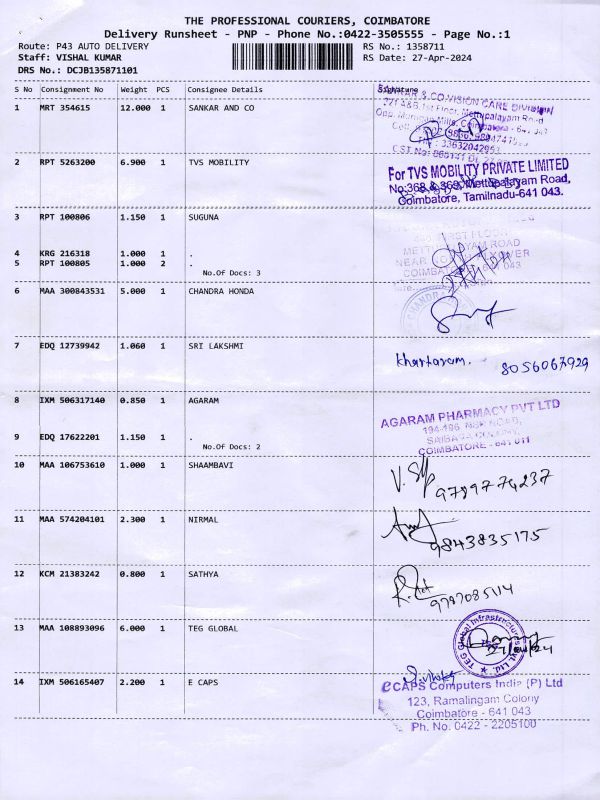 THE PROFESSIONAL COURIERS, COIMBATORE
Delivery Runsheet - PNP - Phone No.:0422-3505555 - Page No.:1
Route: P43 AUTO DELIVERY
RS No.: 1358711
Staff: VISHAL KUMAR
RS Date: 27-Apr-2024
DRS No.: DCJB135871101
S No Consignment No Weight PCS Consignee Details Signature
1 MRT 354615 12.000 1 SANKAR AND CO
SANKAR & CO-VISION CARE Division
271 A&B, 1st Floor, Mettupalayam Road
2 RPT 5263200 6.900 1 TVS MOBILITY
For TVS MOBILITY PRIVATE LIMITED
No:368 & 369, Mettupalayam Road,
Coimbatore, Tamilnadu-641 043.
3 RPT 100806 1.150 1 SUGUNA
FIRST FLOOR
METTUPALAYAM ROAD
4 KRG 216318 1.000 1 .
5 RPT 100805 1.000 2 .
No.Of Docs: 3
6 MAA 300843531 5.000 1 CHANDRA HONDA
7 EDQ 12739942 1.060 1 SRI LAKSHMI
8056067929
8 IXM 506317140 0.850 1 AGARAM
AGARAM PHARMACY PVT LTD
194-196, NSR ROAD,
SAIBABA COLONY,
COIMBATORE - 641 011
9 EDQ 17622201 1.150 1 .
No.Of Docs: 2
10 MAA 106753610 1.000 1 SHAAMBAVI
9789774237
11 MAA 574204101 2.300 1 NIRMAL
9843835175
12 KCM 21383242 0.800 1 SATHYA
13 MAA 108893096 6.000 1 TEG GLOBAL
TEG Global Infrastructures Pvt. Ltd.
27/04/24
14 IXM 506165407 2.200 1 E CAPS
eCAPS Computers India (P) Ltd
123, Ramalingam Colony
Coimbatore - 641 043
Ph. No. 0422 - 2205100